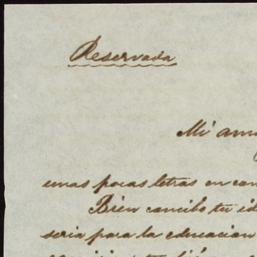 Reservada
Mi am
unas pocas letras en con
Bien concibo tu id
seria para la educacion